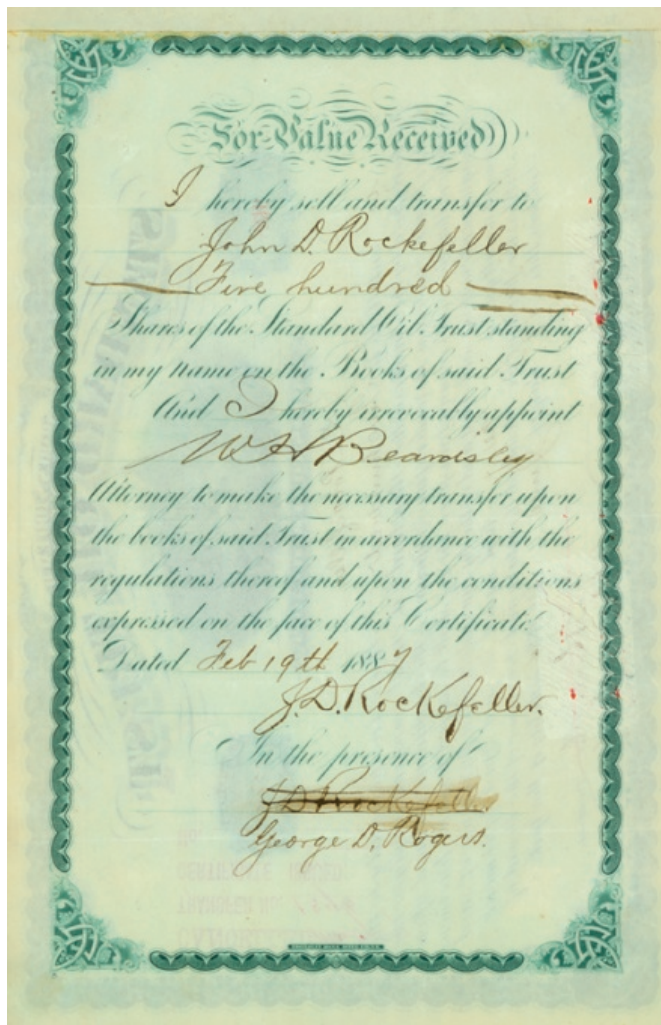 For Value Received
I hereby sell and transfer to
John D. Rockefeller
Five hundred
Shares of the Standard Oil Trust standing
in my name on the Books of said Trust
And I hereby irrevocably appoint
W H Beardsley
Attorney to make the necessary transfer upon
the books of said Trust in accordance with the
regulations thereof and upon the conditions
expressed on the face of this Certificate.
Dated Feb 19th 1887
J. D. Rockefeller.
In the presence of
J D Rockefeller
George D. Rogers.
CERTIFICATE
TRANSFER